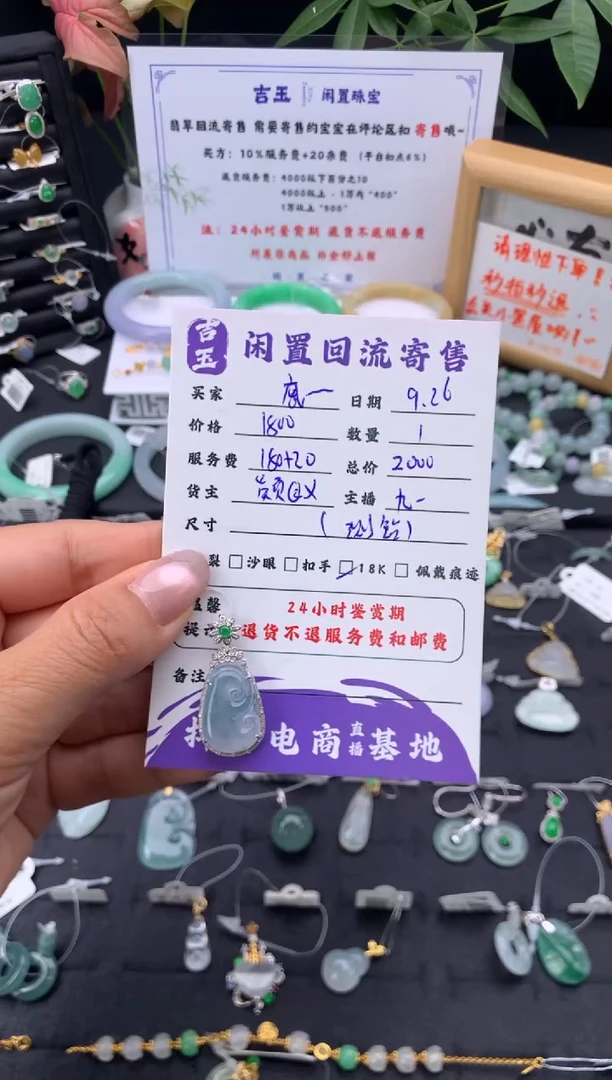 吉玉 闲置珠宝
翡翠回流寄售 需要寄售的宝宝在评论区扣 寄售哦~
买方：10%服务费+20杂费 （平台扣点6%）
退货服务费：4000以下百分之10
4000以上-1万内“400”
1万以上“500”
注：24小时鉴赏期 退货不退服务费
请理性下单！
秒拍秒退
吉玉 闲置回流寄售
买家 日期 9.26
价格 1800 数量 1
服务费 180+20 总价 2000
货主 主播 九一
尺寸
裂 □沙眼 □扣手 ☑18K □佩戴痕迹
温馨 24小时鉴赏期
提示 退货不退服务费和邮费
备注
电商直播基地